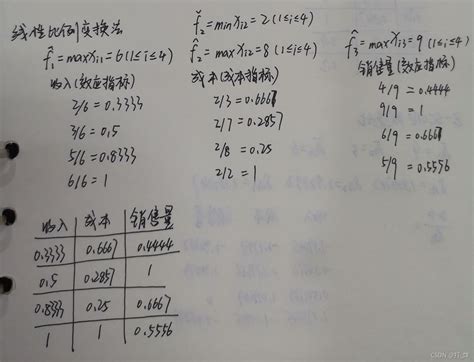 线性比例变换法
f̂₁=maxXi1=6(1≤i≤4)
收入(效应指标)
2/6=0.3333
3/6=0.5
5/6=0.8333
6/6=1
f̌₂=minXi2=2(1≤i≤4)
f̂₂=maxXi2=8(1≤i≤4)
成本(成本指标)
2/3=0.6667
2/7=0.2857
2/8=0.25
2/2=1
f̂₃=maxXi3=9(1≤i≤4)
销售量(效应指标)
4/9=0.4444
9/9=1
6/9=0.6667
5/9=0.5556
收入 成本 销售量
0.3333 0.6667 0.4444
0.5 0.2857 1
0.8333 0.25 0.6667
1 1 0.5556